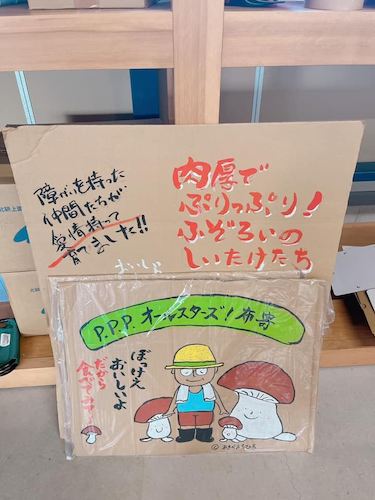 障がいを持った
仲間たちが、
愛情持って
育てました!!
肉厚で
ぷりっぷり!
ふぞろいの
しいたけたち
おいしょ
P.P.P. オールスターズ! 布寄
ぼっけえ
おいしいよ
だから
食べてみてー